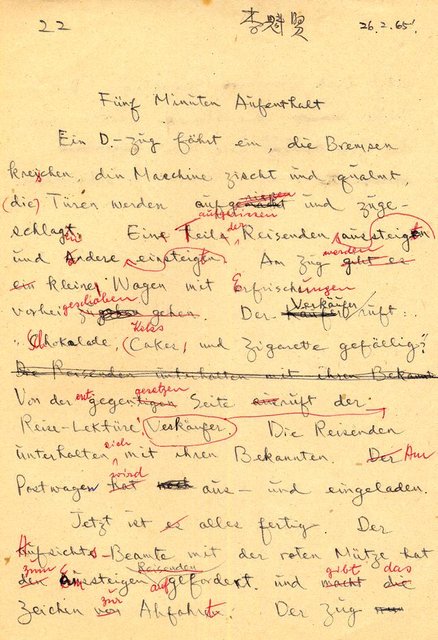 22 李魁賢 26.2.65.
Fünf Minuten Aufenthalt
Ein D.-Zug fährt ein, die Bremsen
kreischen, die Maschine zischt und qualmt,
gerissen
(die) Türen werden aufgemacht und zuge-
aufgerissen
schlagt. Eine Teil der Reisenden aussteigen
und Andere einsteigen. Am Zug werden gibt es
ein kleine Wagen mit Erfrischungen
geschoben Verkäufer
vorbei zu gehen. Der Kaufer ruft:
Keks
"Schokolade, (Cakes) und Zigarette gefällig?"
Die Reisenden unterhalten mit ihren Bekannt
entgegengesetzen
Von der gegentigen Seite ruft der
Reise-Lektüre Verkäufer. Die Reisenden
sich
unterhalten mit ihren Bekannten. Der Am
wird
Postwagen hat noch aus- und eingeladen.
Jetzt ist es alles fertig. Der
Aufsichts-Beamte mit der roten Mütze hat
zum Reisenden gibt das
den aussteigen auf gefordert. und macht die
zur
Zeichen vor Abfahrt. Der Zug